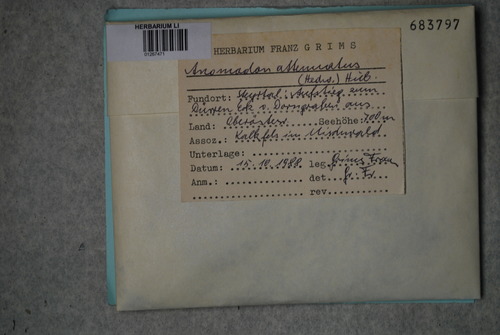 683797
HERBARIUM LI
01287471
HERBARIUM FRANZ GRIMS
Anomodon attenuatus
(Hedw.) Hüb.
Fundort: Aufstieg zum
Dürren Eck v. Dorngraben aus
Land: Oberösterr. Seehöhe: 700m
Assoz. Kalkfels im Mischwald
Unterlage:
Datum: 15.10.1988 leg. Grims Franz
Anm.: det. Gr. Fr.
rev.